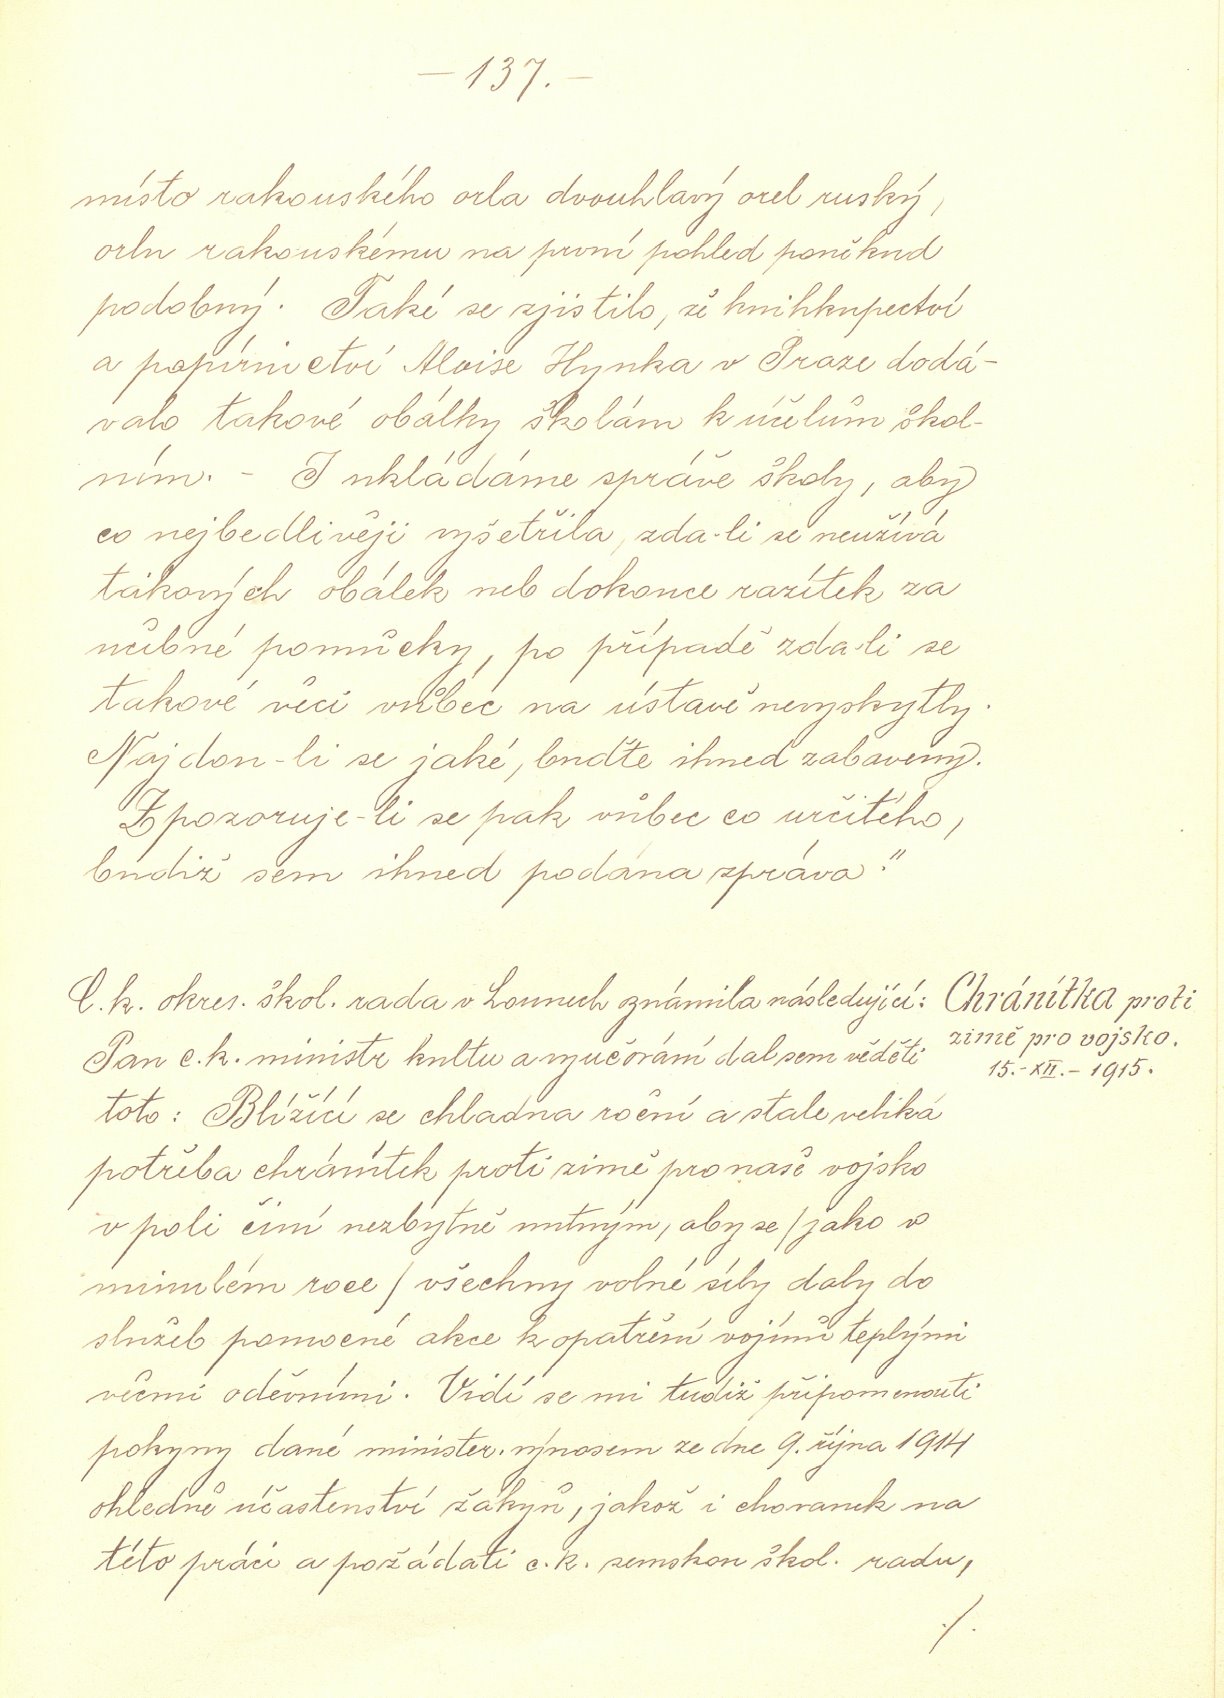 — 137. —
místo rakouského orla dvouhlavý orel ruský,
orlu rakouskému na první pohled poněkud
podobný. Také se zjistilo, že knihkupectví
a papírnictví Aloise Hynka v Praze dodá-
valo takové obálky školám k účelům škol-
ním. - I ukládáme správě školy, aby
co nejbedlivěji vyšetřila, zda-li se neužívá
takových obálek neb dokonce razítek za
učebné pomůcky, po případě zda-li se
takové věci vůbec na ústavě nevyskytly.
Najdou-li se jaké, buďte ihned zabaveny.
Zpozoruje-li se pak vůbec co určitého,
budiž sem ihned podána zpráva."
C. k. okres. škol. rada v Lounech známila následující:
Chránítka proti
zimě pro vojsko.
15.-XII.-1915.
Pan c. k. ministr kultu a vyučování dal sem věděti
toto: Blížící se chladna roční a stále veliká
potřeba chránítek proti zimě pro naše vojsko
v poli činí nezbytně nutným, aby se /jako v
minulém roce/ všechny volné síly daly do
služeb pomocné akce k opatření vojínů teplými
věcmi oděvními. Vidí se mi tudíž připomenouti
pokyny dané minister. výnosem ze dne 9. října 1914
ohledně účastenství žákyň, jakož i chovanek na
této práci a požádati c. k. zemskou škol. radu,
./.